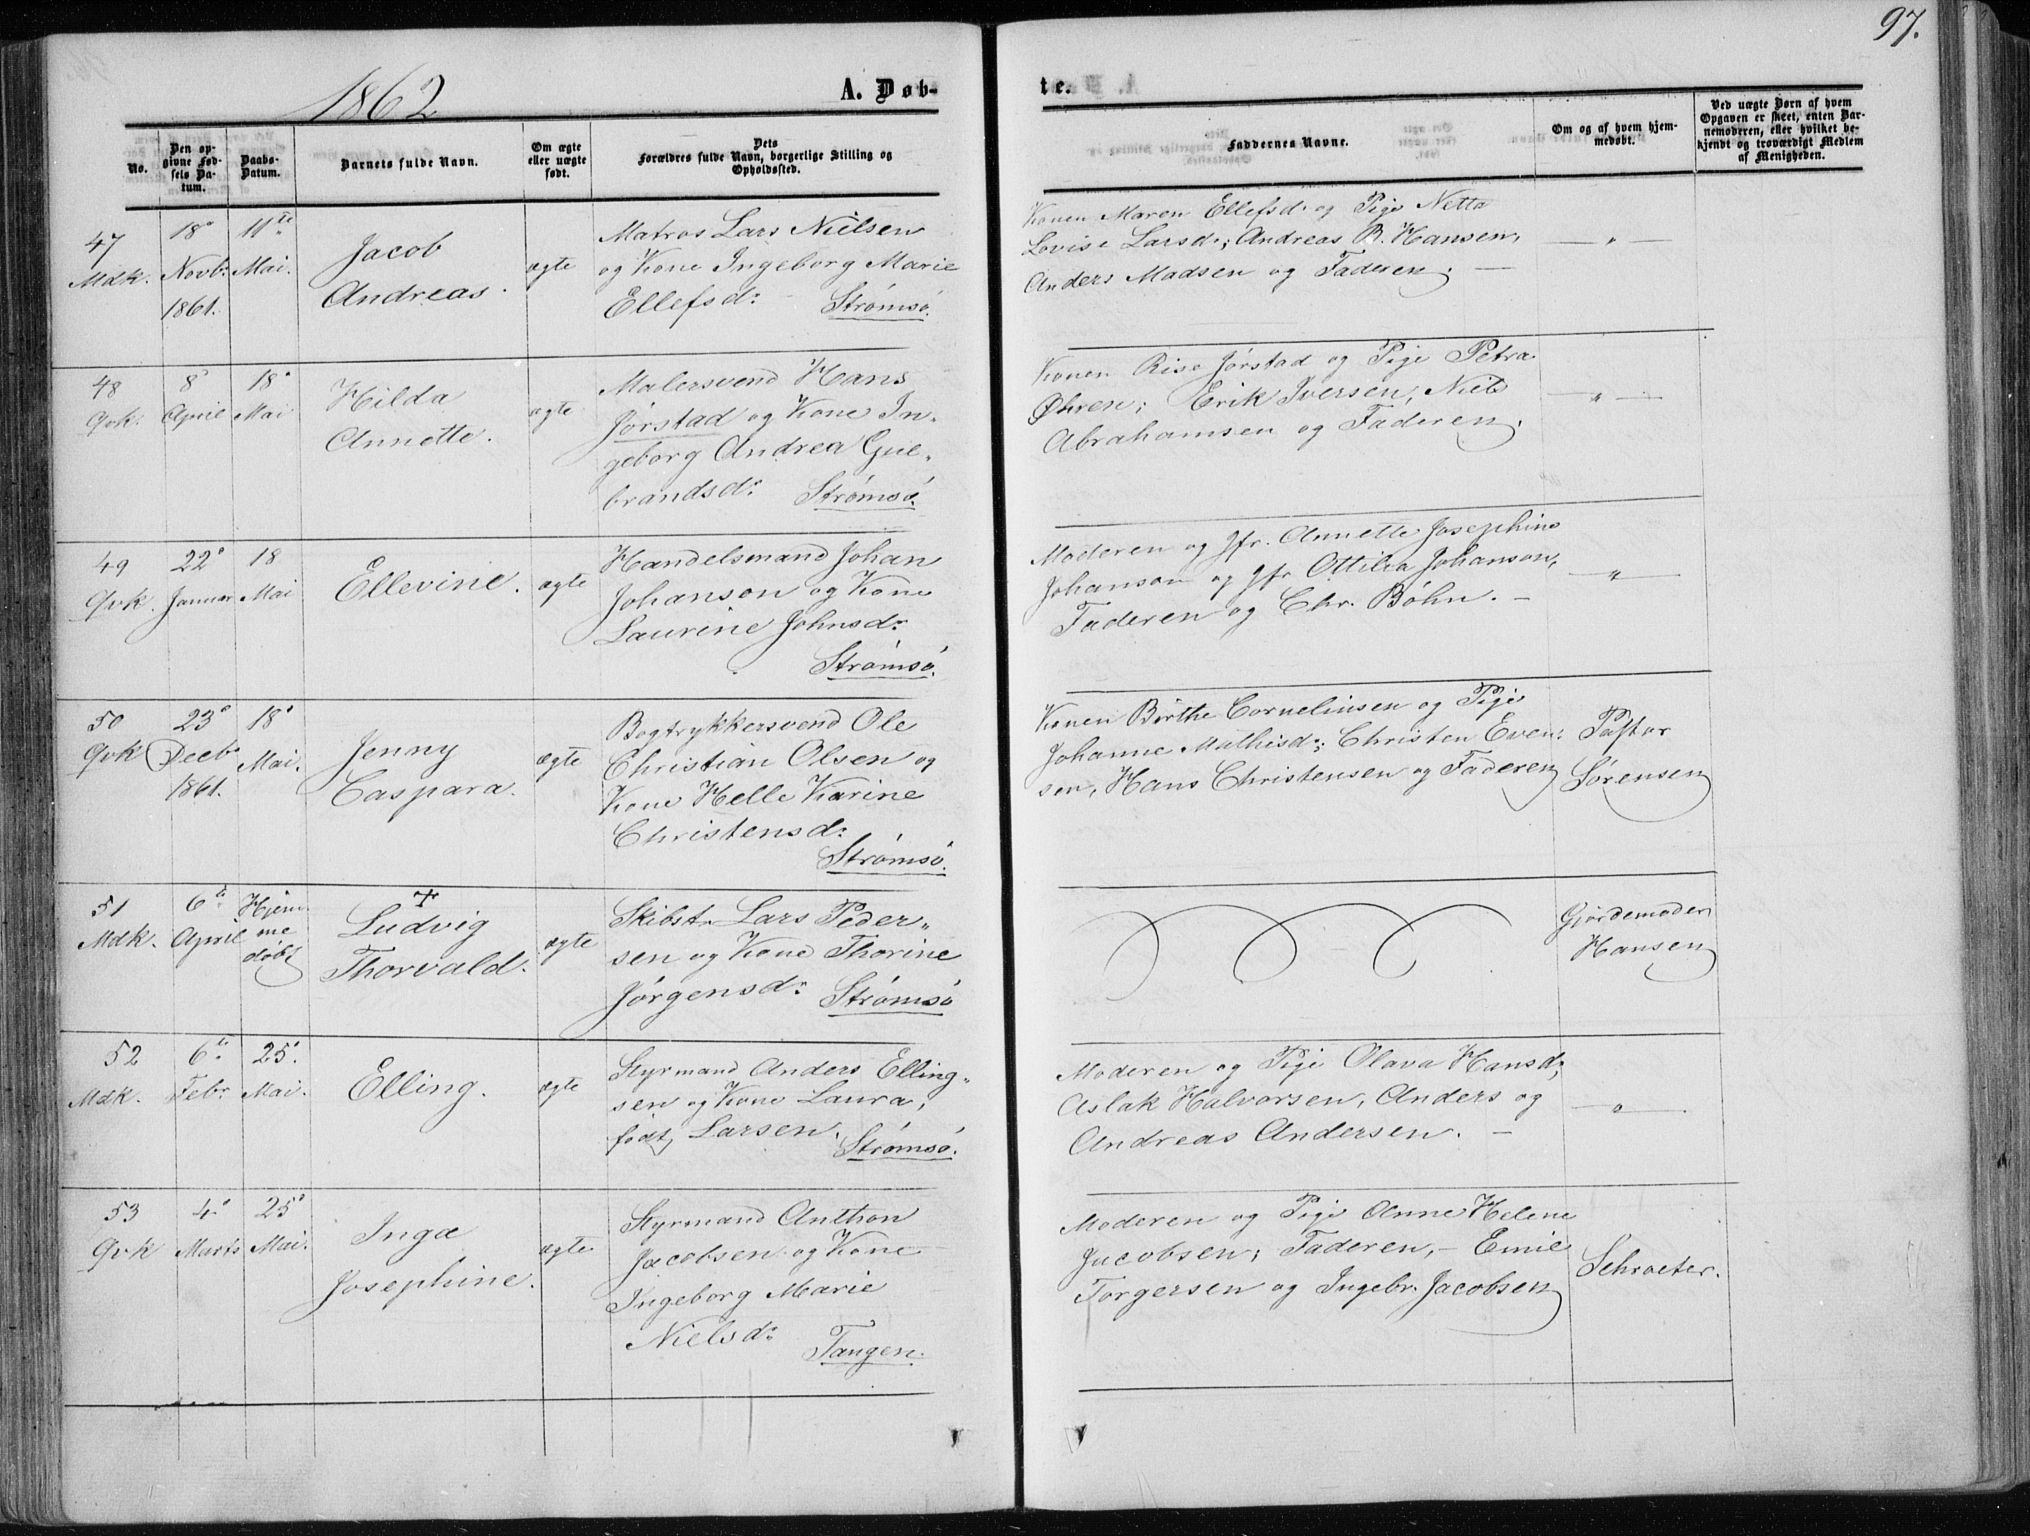 97.
1862
A. Døb-
te.
No.
Den op-
givne Fød-
sels Da-
tum.
Daabs-
Datum.
Barnets fulde Navn.
Om ægte
eller uægte
født.
Dets
Forældres fulde Navn, borgerlige Stilling og
Opholdssted.
Faddernes Navne.
Om og af hvem hjem-
medøbt.
Ved uægte Børn af hvem
Opgaven er skeet, enten Bar-
nemoderen, eller hvilket be-
kjendt og troværdigt Medlem
af Menigheden.
47
Mdk.
18°
Novb:
1861.
11te
Mai.
Jacob
Andreas.
ægte
Matros Lars Nielsen
og Kone Ingeborg Marie
Ellefsd: Strømsø.
Konen Maren Ellefsd. og Pige Netta
Lovise Larsd.; Andreas B. Hansen,
Anders Madsen og Faderen. —
— " —
48
Qvk.
8°
April
18°
Mai
Hilda
Annette.
ægte
Malersvend Hans
Jørstad og Kone In-
geborg Andrea Gul-
brandsd: Strømsø.
Konen Rise Jørstad og Pige Petra
Øhren; Erik Iversen, Niels
Abrahamsen og Faderen.
— " —
49
Qvk.
22°
Januar
18
Mai
Ellevine.
ægte
Handelsmand Johan
Johanson og Kone
Laurine Johnsd:
Strømsø.
Moderen og Jfr. Annette Josephine
Johanson og Jfr Ottilia Johanson,
Faderen og Chr. Bøhn. —
— " —
50
Qvk
23°
Decb.
1861.
18°
Mai.
Jenny
Caspara.
ægte
Bogtrykkersvend Ole
Christian Olsen og
Kone Helle Karine
Christensd:
Strømsø.
Konen Birthe Cornelinsen og Pige
Johanne Mathisd:; Christen Even-
sen, Hans Christensen og Faderen
Pastor
Sørensen
51
Mdk.
6te
April
Hjem
me
døbt
+
Ludvig
Thorvald.
ægte
Skibst. Lars Peder-
sen og Kone Thorine
Jørgensd: Strømsø
Gjordemoder
Hansen
52
Mdk.
6te
Febr.
25°
Mai.
Elling.
ægte
Styrmand Anders Elling-
sen og Kone Laura,
født Larsen. Strømsø.
Moderen og Pige Olava Hansd;
Aslak Halvorsen, Anders og
Andreas Andersen. —
— " —
53
Qvk
4°
Marts
25°
Mai.
Inga
Josephine.
ægte
Styrmand Anthon
Jacobsen og Kone
Ingeborg Marie
Nielsd: Tangen.
Moderen og Pige Anne Helene
Jacobsen; Faderen, — Emil
Torgersen og Ingebr. Jacobsen
Schroeter.